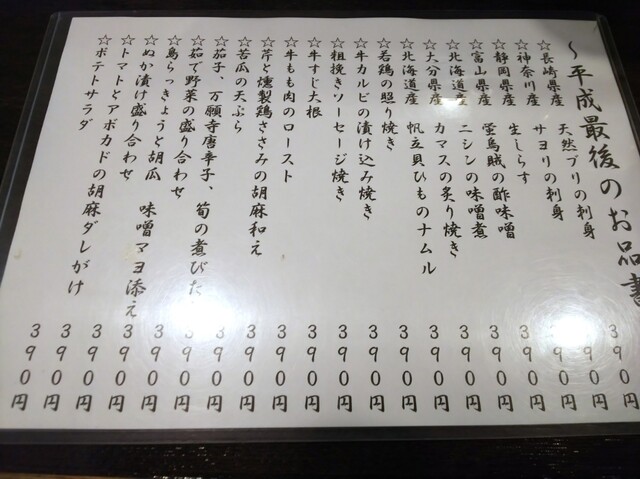 ～平成最後のお品書
☆長崎県産 天然ブリの刺身 390円
☆神奈川産 サヨリの刺身 390円
☆静岡県産 生しらす 390円
☆富山県産 螢烏賊の酢味噌 390円
☆北海道産 ニシンの味噌煮 390円
☆大分県産 カマスの炙り焼き 390円
☆北海道産 帆立貝ひものナムル 390円
☆若鶏の照り焼き 390円
☆牛カルビの漬け込み焼き 390円
☆粗挽きソーセージ焼き 390円
☆牛すじ大根 390円
☆牛もも肉のロースト 390円
☆芹と燻製鶏ささみの胡麻和え 390円
☆苦瓜の天ぷら 390円
☆茄子、万願寺唐辛子、筍の煮びた 390円
☆茹で野菜の盛り合わせ 390円
☆島らっきょうと胡瓜 味噌マヨ添え 390円
☆ぬか漬け盛り合わせ 390円
☆トマトとアボカドの胡麻ダレがけ 390円
☆ポテトサラダ 390円